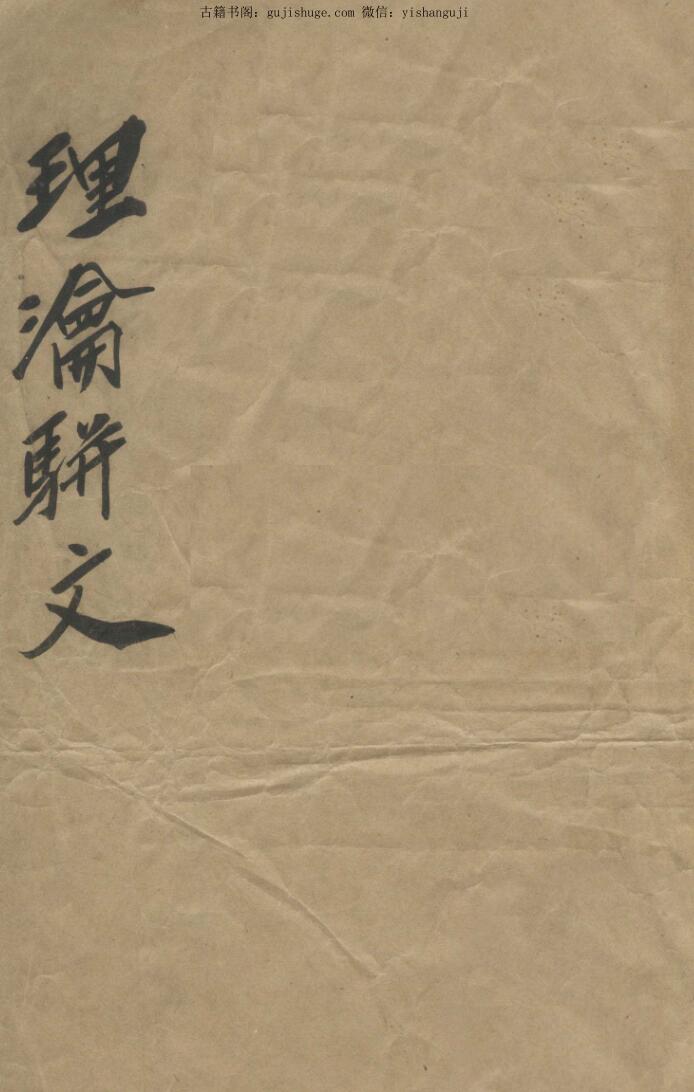 古籍书阁：gujishuge.com 微信：yishanguji
理瀹駢文